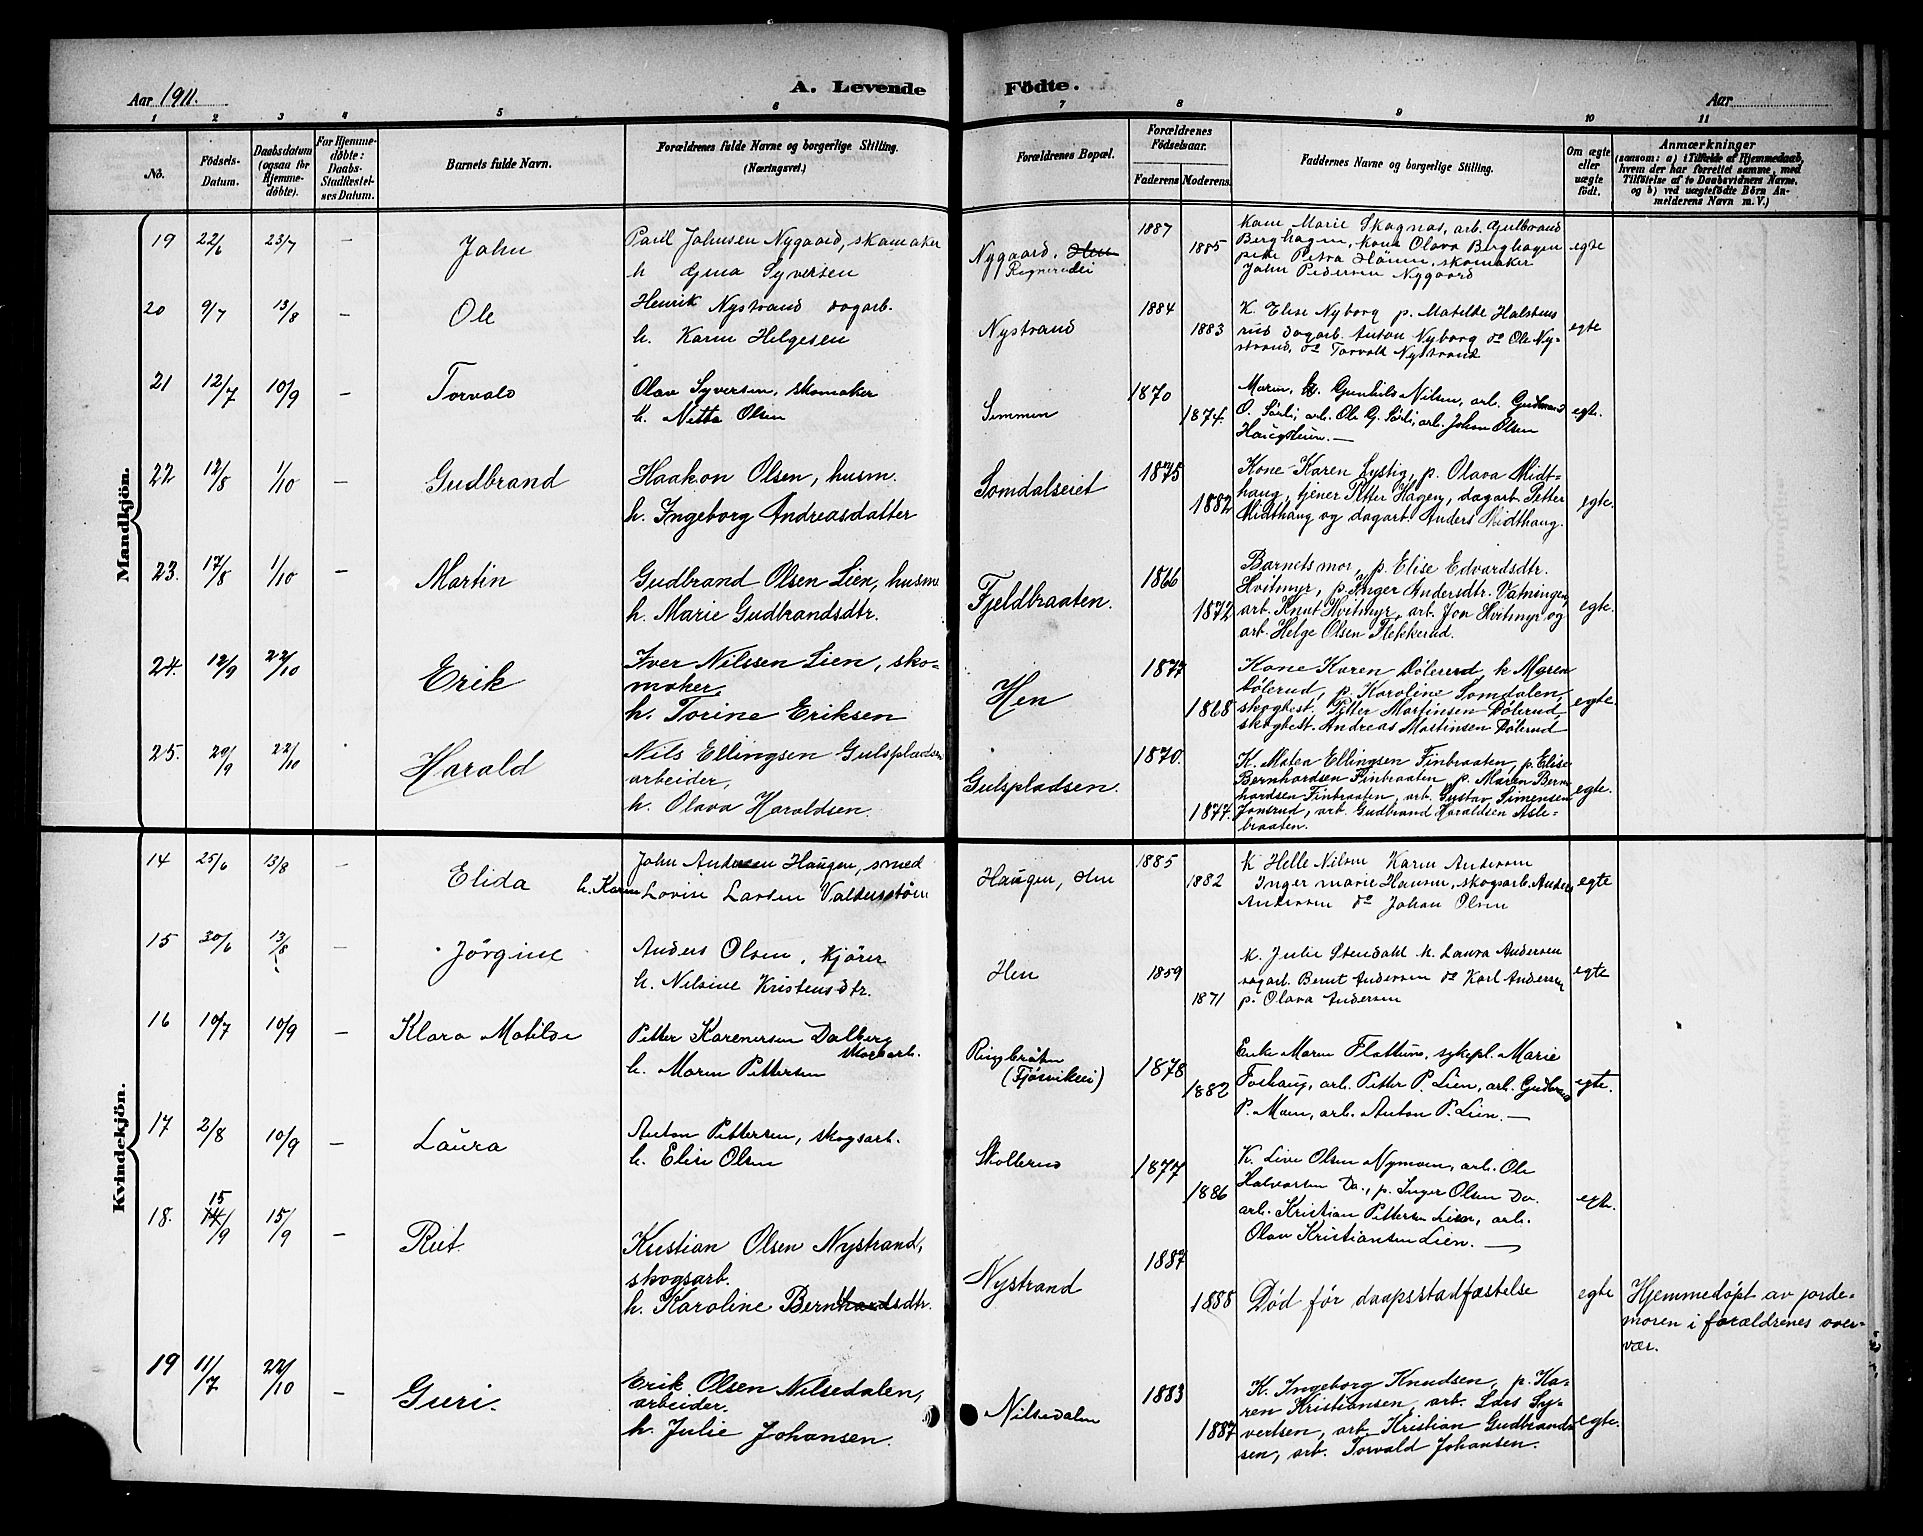 Aar 1911.
A. Levende Födte.
Aar
1 2 3 4 5 6 7 8 9 10 11
No.
Födsels-
Datum.
Daabsdatum
(ogsaa for
Hjemme-
døbte).
For Hjemme-
døbte:
Daabs-
StadRestel-
ses Datum.
Barnets fulde Navn.
Forældrenes fulde Navne og borgerlige Stilling.
(Næringsvei.)
Forældrenes Bopæl.
Forældrenes
Födselsaar.
Faderens. Moderens.
Faddernes Navne og borgerlige Stilling.
Om ægte
eller
uægte
födt.
Anmærkninger
(saasom: a) i Tilfælde af Hjemmedaab,
hvem der har forrettet samme, med
Tilföielse af to Daabsvidners Navne,
og b) ved uægtefödte Börn An-
melderens Navn m. V.)
Mandkjön.
19 22/6 23/7 — John
Paul Johnsen Nygaard, skomaker
h Gina Syversen
Nygaard, Hen
1887
1885
Berghagen, kone Olava Berghagen
John Pedersen Nygaard
egte
20 9/7 13/8 — Ole
Henrik Nystrand dagarb.
h. Karen Helgesen
Nystrand
1884
1883
K. Elise Nyborg p. Matilde Halstens
rud dagarb. Anton Nyborg do Ole Ny-
strand, do Torvald Nystrand
egte
21 12/7 10/9 — Torvald
Olav Syversen, skomaker
h. Netta Olsen
Semmen
1870
1874.
Gunhild Nilsen, arb. Gudmund
O. Sørli, arb. Ole G. Sørli, arb. Johan Olsen
Haugsteen. —
egte.
22 12/8 1/10 — Gudbrand
Haakon Olsen, husm.
h. Ingeborg Andreasdatter
Somdalseiet
1875
1882
Kone Karen Lystig, p. Olava Midt-
haug, tjener Petter Hagen, dagarb. Petter
Midthaug og dagarb. Anders Midthaug.
egte.
23. 17/8 1/10 — Martin
Gudbrand Olsen Lien, husm
h. Marie Gudbrandsdtr.
Fjeldbraaten.
1866
1872
Barnets mor, p. Elise Edvardsdtr.
Hvitmyr, p. Inger Andersdtr. Vatningen,
arb. Knut Hvitmyr, arb. Jon Hvitmyr og
arb. Helge Olsen Flekkerud.
egte.
24. 12/9 22/10 Erik
Iver Nilssen Lien, sko-
maker,
h. Torine Eriksen
Hen
1877
1868
Kone Karen Dölerud, k Maren
Dölerud, p. Karoline Somdalen,
skogbest. Petter Martinsen Dölerud,
skogbest. Andreas Martinsen Dölerud
egte.
25. 29/9 22/10 Harald
Nils Ellingsen Gulspladsen
arbeider,
h. Olava Haraldsen.
Gulspladsen.
1870.
1877.
K. Maten Ellingsen Finbraaten, p. Elise
Bernhardsen Finbraaten, p. Maren Bern-
hardsen Finbraaten, arb. Gustav Simensen
Jonsrud, arb. Gudbrand Haraldsen Asle-
braaten.
egte.
Kvindekjön.
14 25/6 13/8 — Elida
John Andersen Haugen, smed
h. Karen Lovise Larsen
Haugen, Hen
1885
1882
K Helle Nilsen Karen Andersen
Inger Marie Hansen, skogsarb. Anders
Andersen do Johan Olsen
egte
15 30/6 13/8 — Jörgine
Anders Olsen, kjörer
h. Nilsine Kristensdtr.
Hen
1859
1871
K. Julie Stendahl k. Laura Andersen
sagarb. Bernt Andersen do Karl Andersen
p. Olava Andersen
egte
16 10/7 10/9 — Klara Matilde
Petter Karenersen Dalberg
skogsarb.
h. Maren Pettersen
Ringbråten
(Fjösvikeei)
1878
1882
Enke Maren Flattum, sykepl. Marie
Foshaug, arb. Petter P. Lien, arb. Gudbrand
P. Moen, arb. Anton P. Lien. —
egte.
17 2/8 10/9 — Laura
Anton Pettersen, skogsarb.
h. Elise Olsen
Skollerud
1877
1886
K. Live Olsen Nymoen, arb. Ole
Halvorsen Do., p. Inger Olsen Do.
arb. Kristian Pettersen Lien, arb.
Olav Kristiansen Lien. —
egte.
18. 15 14/9 15/9 — Rut.
Kristian Olsen Nystrand,
skogsarb.
h. Karoline Bernhardsdtr.
Nystrand
1887
1888
Död för daapsstadfæstelse
egte
Hjemmedöpt av jorde-
moren i forældrenes over-
vær.
19 11/7 22/10 — Guri.
Erik Olsen Nilsedalen,
arbeider.
h. Julie Johansen.
Nilsedalen
1883
1887
K. Ingeborg Knudsen, p. Ka-
ren Kristiansen, arb. Lars Sy-
vertsen, arb. Kristian Gudbrand-
sen, arb. Torvald Johansen.
egte.